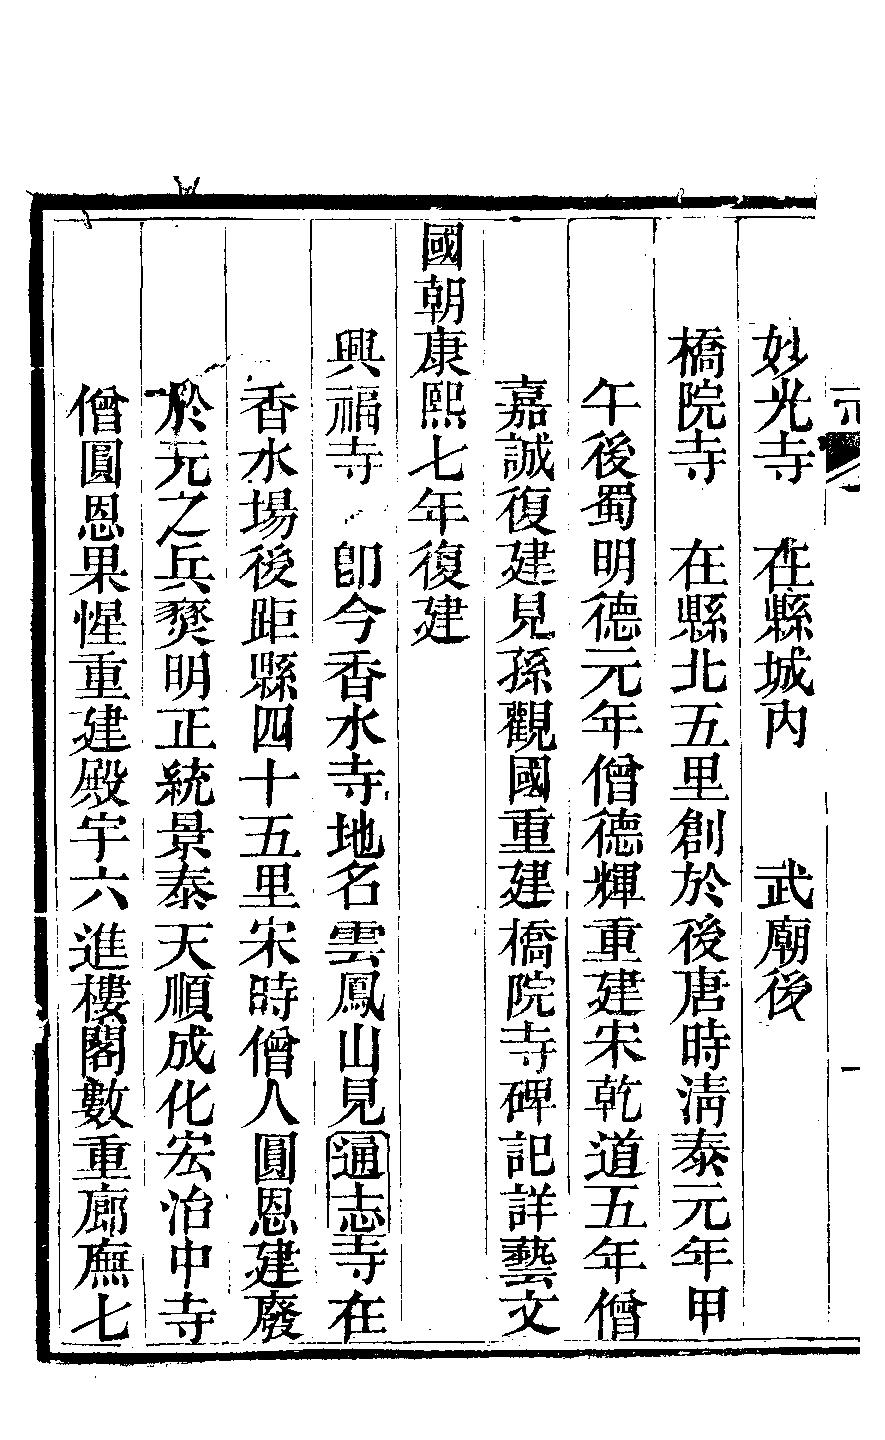 妙光寺　在縣城內　　武廟後
橋院寺　在縣北五里創於後唐時淸泰元年甲
午後蜀明德元年僧德輝重建宋乾道五年僧
嘉誠復建見孫觀國重建橋院寺碑記詳藝文
國朝康熙七年復建
興福寺　卽今香水寺地名雲鳳山見通志寺在
香水場後距縣四十五里宋時僧人圓恩建廢
於元之兵燹明正統景泰天順成化宏治中寺
僧圓恩果惺重建殿宇六進樓閣數重廊廡七